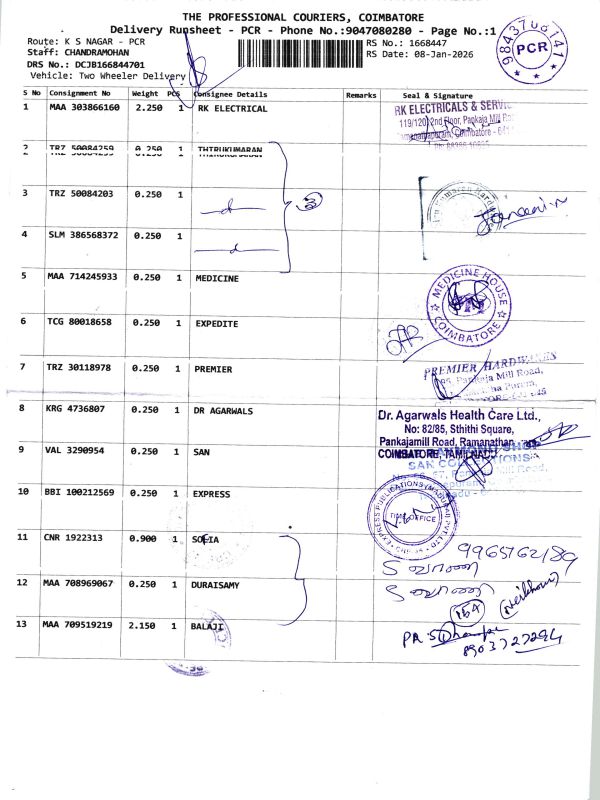 THE PROFESSIONAL COURIERS, COIMBATORE
Delivery Runsheet - PCR - Phone No.:9047080280 - Page No.:1
Route: K S NAGAR - PCR
RS No.: 1668447
Staff: CHANDRAMOHAN
RS Date: 08-Jan-2026
DRS No.: DCJB166844701
Vehicle: Two Wheeler Delivery
9843708141
PCR
S No Consignment No Weight PCS Consignee Details Remarks Seal & Signature
1 MAA 303866160 2.250 1 RK ELECTRICAL
RK ELECTRICALS &
119/120, 2nd Floor, Pankaja Mill
Coimbatore -
2 TRZ 50084259 0.250 1 THIRUKUMARAN
3 TRZ 50084203 0.250 1
3
4 SLM 386568372 0.250 1
5 MAA 714245933 0.250 1 MEDICINE
MEDICINE HOUSE
COIMBATORE
6 TCG 80018658 0.250 1 EXPEDITE
7 TRZ 30118978 0.250 1 PREMIER
PREMIER HARDWARES
Pankaja Mill Road,
8 KRG 4736807 0.250 1 DR AGARWALS
Dr. Agarwals Health Care Ltd.,
No: 82/85, Sthithi Square,
Pankajamill Road, Ramanathan
COIMBATORE, TAMILNADU
9 VAL 3290954 0.250 1 SAN
SAN
Mill Road,
10 BBI 100212569 0.250 1 EXPRESS
EXPRESS PUBLICATIONS (MADURAI) PVT LTD
TIME OFFICE
11 CNR 1922313 0.900 1 SOFIA
9965762189
12 MAA 708969067 0.250 1 DURAISAMY
164
13 MAA 709519219 2.150 1 BALAJI
8903727294